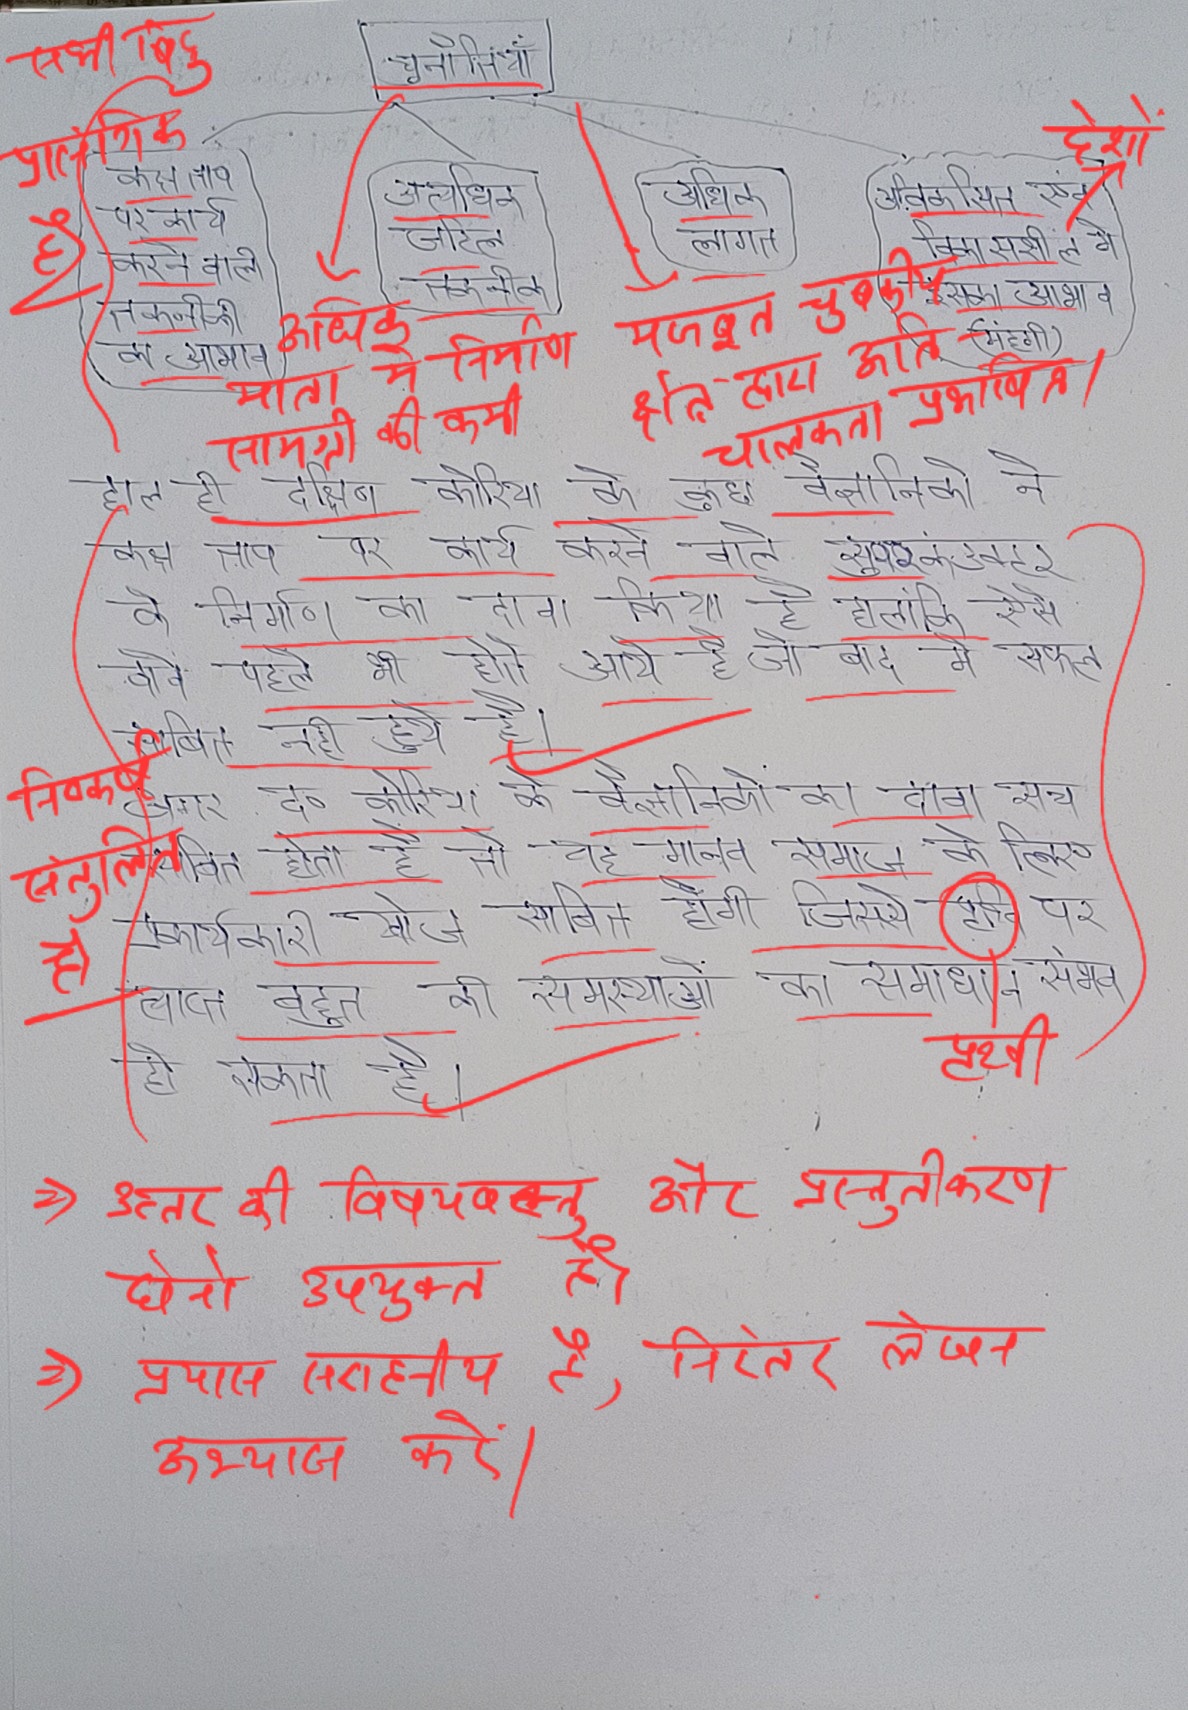 सभी बिंदु
प्रासंगिक
हैं
चुनौतियाँ
कक्ष ताप
पर कार्य
करने वाली
तकनीकी
का अभाव
अत्यधिक
जटिल
तकनीक
अधिक
लागत
देशों
अविकसित एवं
विकासशील में
इसका अभाव
(मंहगी)
अधिक
मात्रा में निर्माण
सामग्री की कमी
मजबूत चुंबकीय
क्षेत्र द्वारा अति
चालकता प्रभावित।
हाल ही दक्षिण कोरिया के कुछ वैज्ञानिको ने
कक्ष ताप पर कार्य करने वाले सुपरकंडक्टर
के निर्माण का दावा किया है हालांकि ऐसे
दावे पहले भी होते आये है जो बाद मे सफल
साबित नही हुये है।
निष्कर्ष
संतुलित
है
अगर द० कोरिया के वैज्ञानिकों का दावा सत्य
साबित होता है तो यह मानव समाज के लिए
कार्यकारी खोज साबित होगी जिससे पर
व्याप्त बहुत की समस्याओं का समाधान संभव
हो सकता है।
पृथ्वी
⇒ उत्तर की विषयवस्तु और प्रस्तुतीकरण
दोनो उपयुक्त है।
⇒ प्रयास सराहनीय है, निरंतर लेखन
अभ्यास करें।